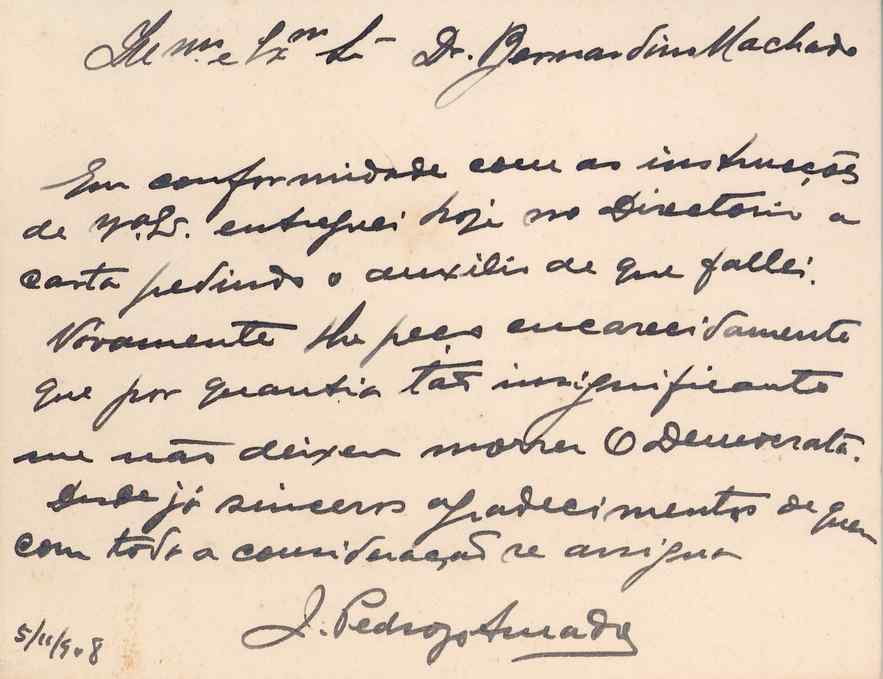 Illmº e Exmº Sr Dr. Bernardino Machado
Em conformidade com as instrucções
de V.ª Ex. entreguei hoje no Directorio a
carta pedindo o auxilio de que fallei.
Novamente lhe peço encarecidamente
que por quantia tão insignificante
me não deixem morrer O Democrata.
Desde já sinceros agradecimentos de quem
com toda a consideração se assigna
J. Pedrozo Amado
5/11/908